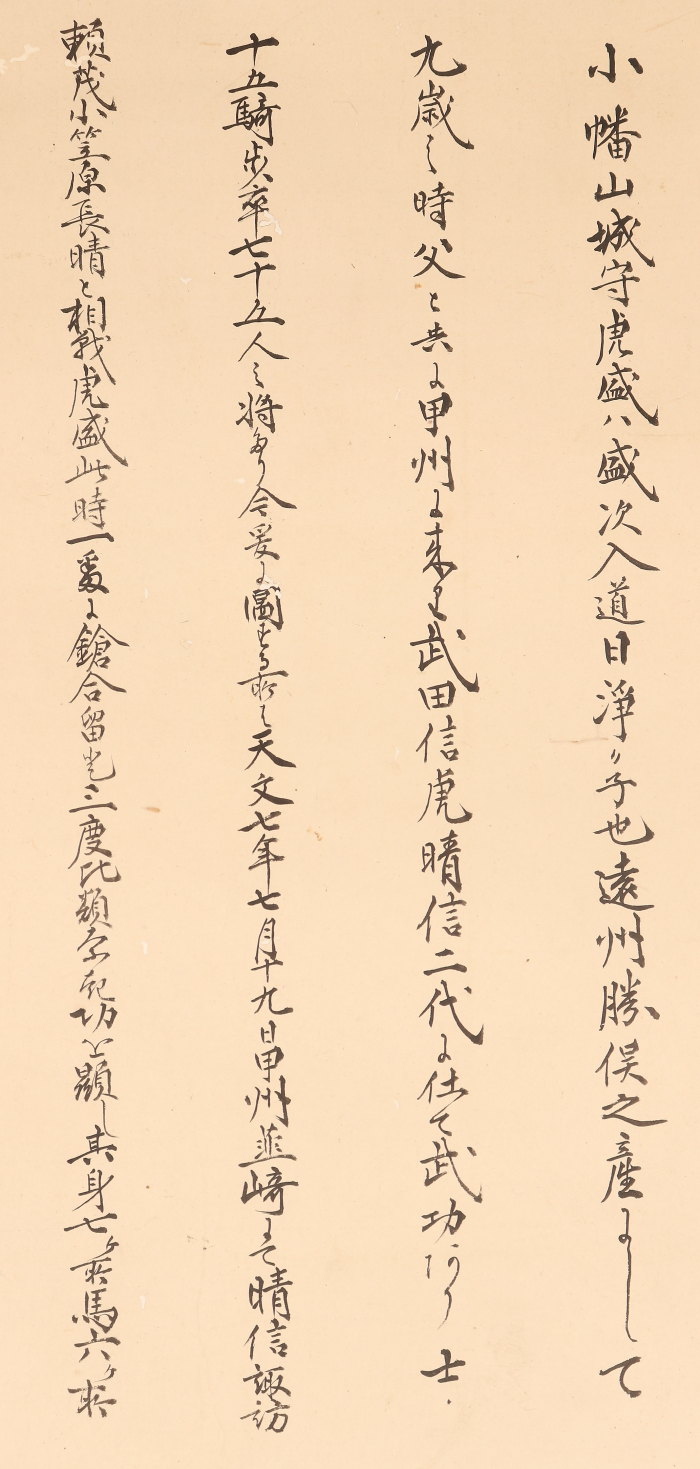 小幡山城守虎盛ハ盛次入道日浄カ子也遠州勝俣之産にして
九歳之時父と共に甲州に来り武田信虎晴信二代に仕て武功あり士
十五騎歩卒七十五人之将たり今爰に圖する所は天文七年七月十九日甲州韮崎にて晴信諏訪
頼茂小笠原長晴と相戦虎盛此時一番に鎗合留㐂三度比類なき功を顕し其身七ヶ所馬六ヶ所